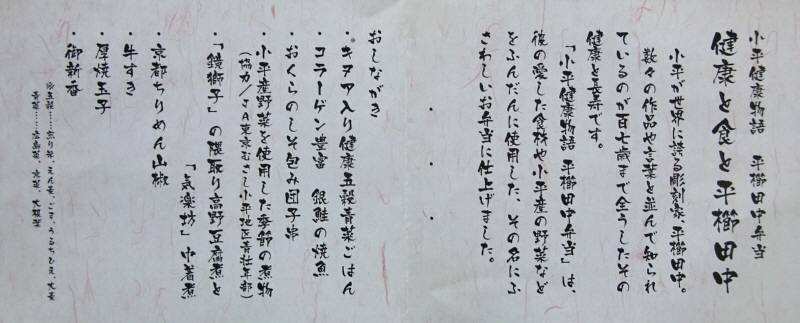 小平健康物語　平櫛田中弁当
健康と食と平櫛田中
小平が世界に誇る彫刻家、平櫛田中。
数々の作品や言葉と並んで知られ
ているのが百七歳まで全うしたその
健康と長寿です。
「小平健康物語　平櫛田中弁当」は、
彼の愛した食材や小平産の野菜など
をふんだんに使用した、その名にふ
さわしいお弁当に仕上げました。
おしながき
・キヌア入り健康五穀青菜ごはん
・コラーゲン豊富　銀鮭の焼魚
・おくらのしそ包み団子串
・小平産野菜を使用した季節の煮物
（協力／JA東京むさし小平地区青壮年部）
・「鏡獅子」の隈取り高野豆腐煮と
「気楽坊」巾着煮
・京都ちりめん山椒
・牛すき
・厚焼玉子
・御新香
※五穀……煎り米、えん麦、ごま、うるちひえ、大麦
青菜……広島菜、京菜、大根葉